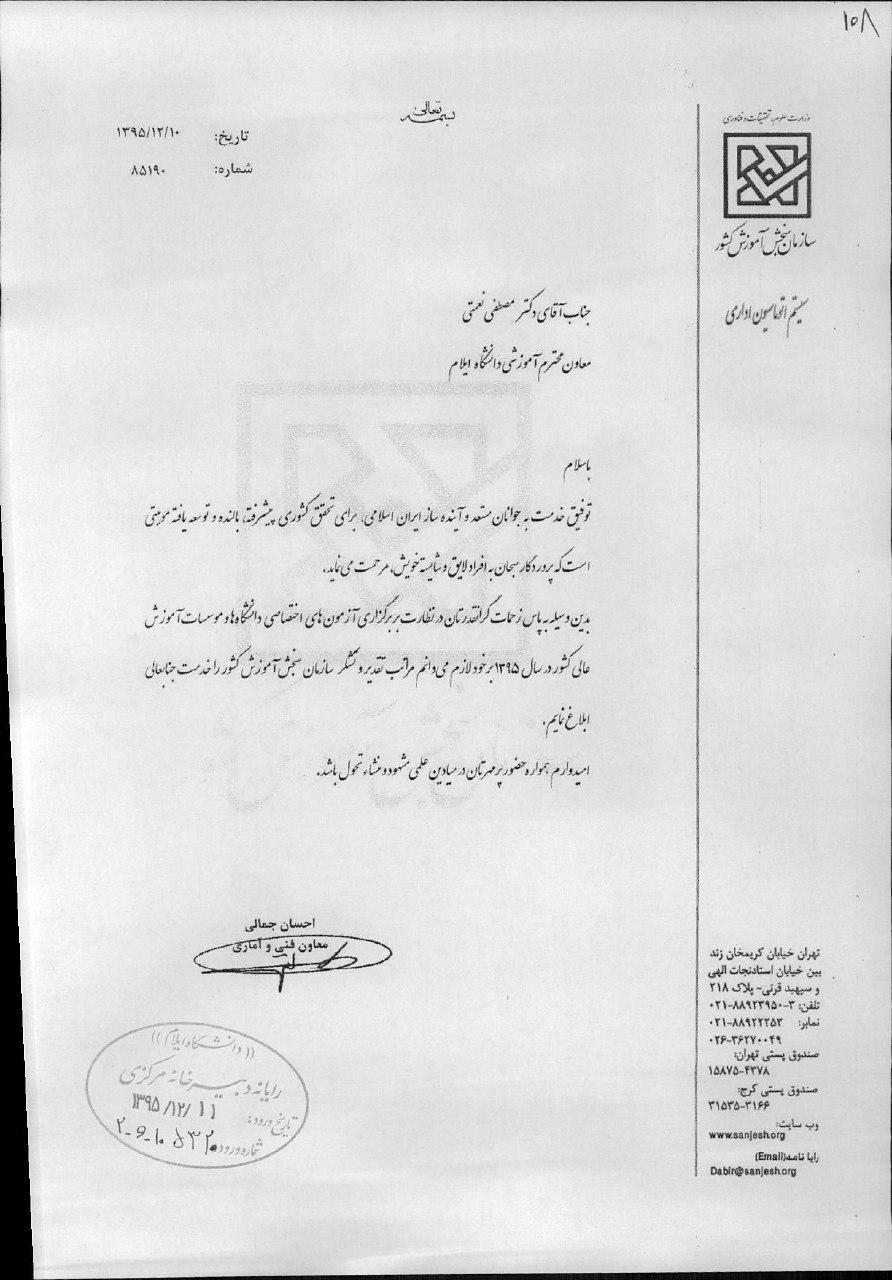 ۱۰۸
بسمه تعالی
وزارت علوم، تحقیقات و فناوری
سازمان سنجش آموزش کشور
سیستم اتوماسیون اداری
تاریخ: ۱۳۹۵/۱۲/۱۰
شماره: ۸۵۱۹۰
جناب آقای دکتر مصطفی نعمتی
معاون محترم آموزشی دانشگاه ایلام
باسلام
توفیق خدمت به جوانان مستعد و آینده ساز ایران اسلامی، برای تحقق کشوری پیشرفته، بالنده و توسعه یافته موهبتی
است که پروردگار سبحان به افراد لایق و شایسته خویش، مرحمت می نماید.
بدین وسیله به پاس زحمات گرانقدرتان در نظارت بر برگزاری آزمون های اختصاصی دانشگاه ها و موسسات آموزش
عالی کشور در سال ۱۳۹۵ برخود لازم می دانم مراتب تقدیر و تشکر سازمان سنجش آموزش کشور را خدمت جنابعالی
ابلاغ نمایم.
امیدوارم همواره حضور پرمهرتان در میادین علمی مشهود و منشاء تحول باشد.
احسان جمالی
معاون فنی و آماری
((دانشگاه ایلام))
رایانه دبیرخانه مرکزی
تاریخ ورود: ۱۳۹۵/۱۲/۱۱
شماره ورود:
تهران خیابان کریمخان زند
بین خیابان استادنجات الهی
و سپهبد قرنی- پلاک ۲۱۸
تلفن: ۳-۸۸۹۲۳۹۵۰-۰۲۱
نمابر: ۸۸۹۲۲۲۵۳-۰۲۱
۰۲۶-۳۶۲۷۰۰۴۹
صندوق پستی تهران:
۱۵۸۷۵-۴۳۷۸
صندوق پستی کرج:
۳۱۵۳۵-۳۱۶۶
وب سایت:
www.sanjesh.org
رایا نامه(Email)
Dabir@sanjesh.org